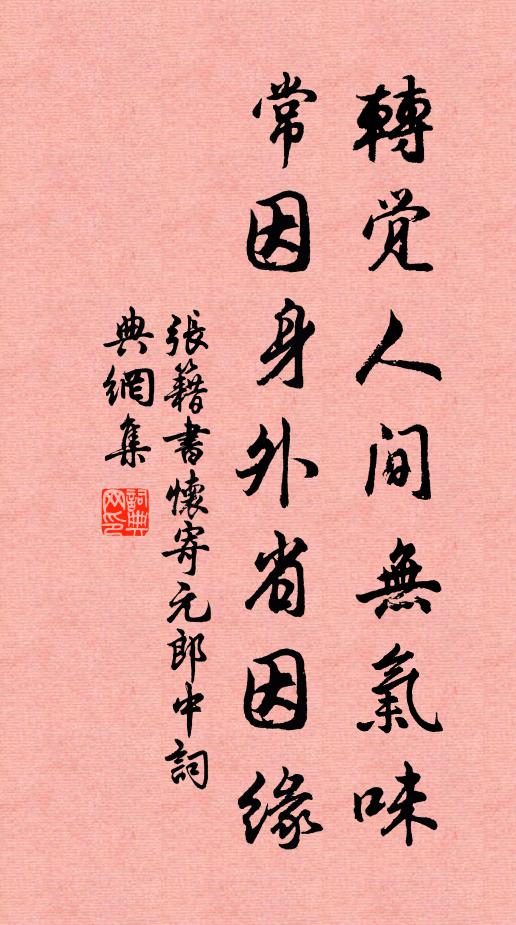 轉覺人間無氣味
常因身外省因緣
張籍書懷寄元郎中詞
典網集
詞典網印